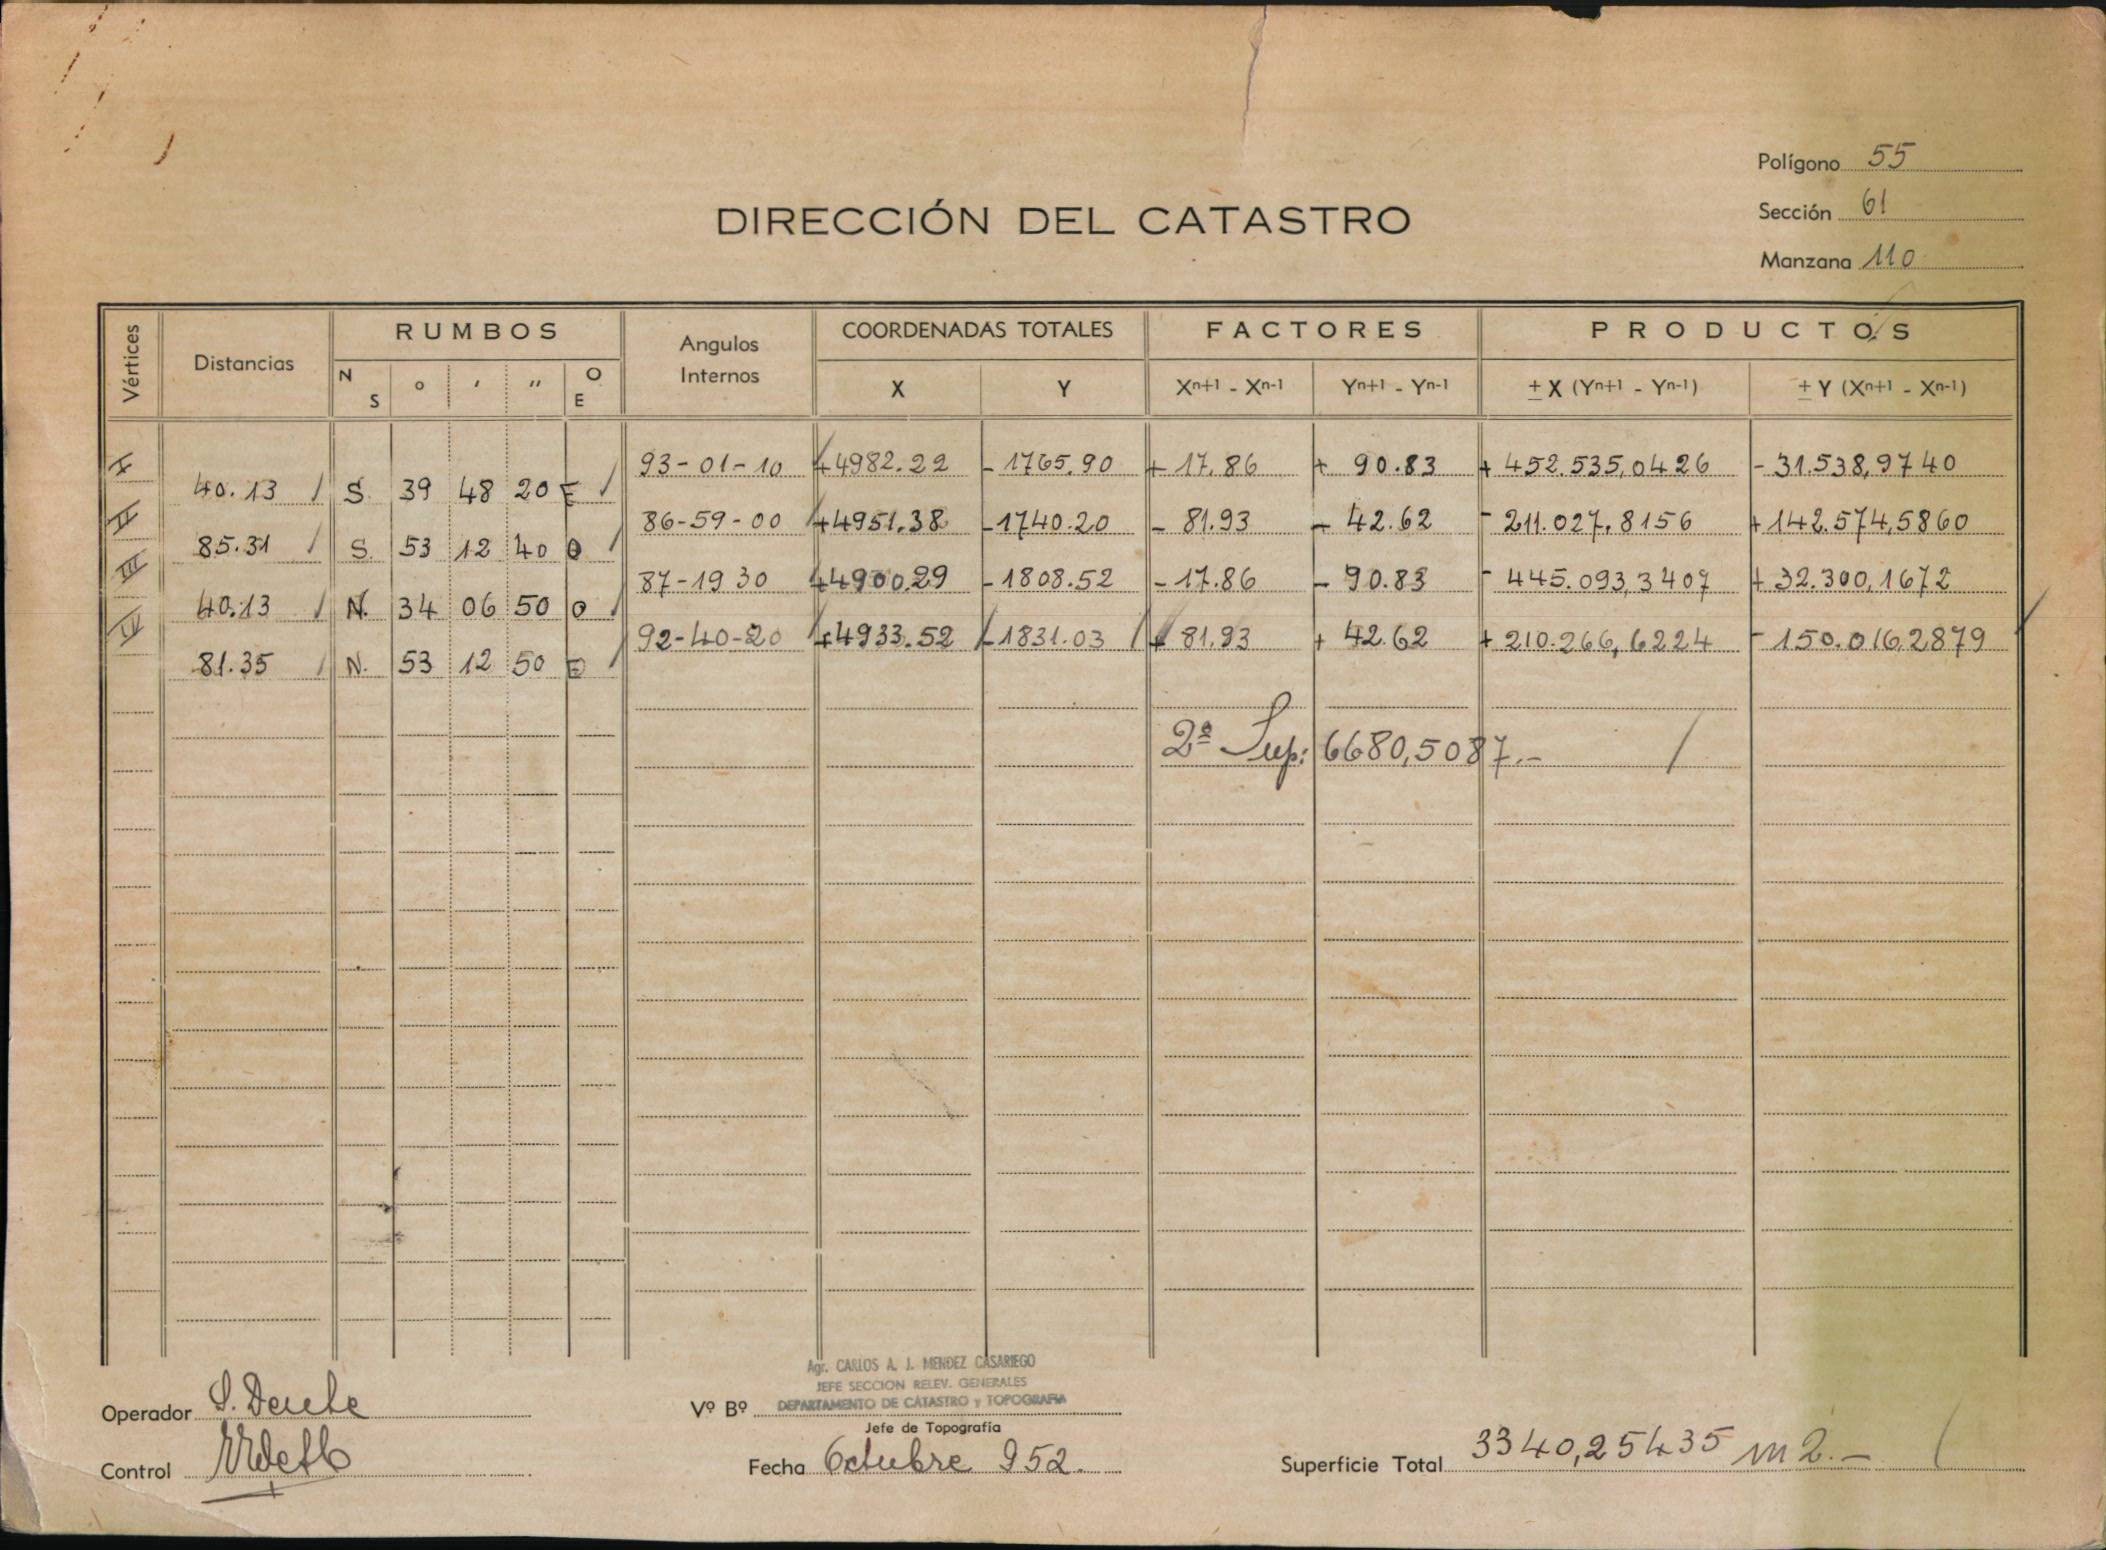 Polígono 55
Sección 61
DIRECCIÓN DEL CATASTRO
Manzana 110
Vértices Distancias RUMBOS Angulos Internos COORDENADAS TOTALES FACTORES PRODUCTOS
N S o ' '' O E X Y Xn+1 - Xn-1 Yn+1 - Yn-1 ± X (Yn+1 - Yn-1) ± Y (Xn+1 - Xn-1)
I 93-01-10 +4982.22 -1765.90 + 17.86 + 90.83 + 452.535,0426 - 31.538,9740
40.13 S. 39 48 20 E
II 86-59-00 +4951.38 -1740.20 - 81.93 - 42.62 - 211.027,8156 + 142.574,5860
85.31 S. 53 12 40 O
III 87-19 30 +4900.29 -1808.52 - 17.86 - 90.83 - 445.093,3407 + 32.300,1672
40.13 N. 34 06 50 O
IV 92-40-20 +4933.52 -1831.03 + 81.93 + 42.62 + 210.266,6224 - 150.016,2879
81.35 N. 53 12 50 E
2ª Sup: 6680,5087.-
Agr. CARLOS A. J. MENDEZ CASARIEGO
JEFE SECCION RELEV. GENERALES
DEPARTAMENTO DE CATASTRO y TOPOGRAFIA
Operador Vº Bº
Jefe de Topografía
Control Fecha Octubre 952. Superficie Total 3340,25435 m2.-